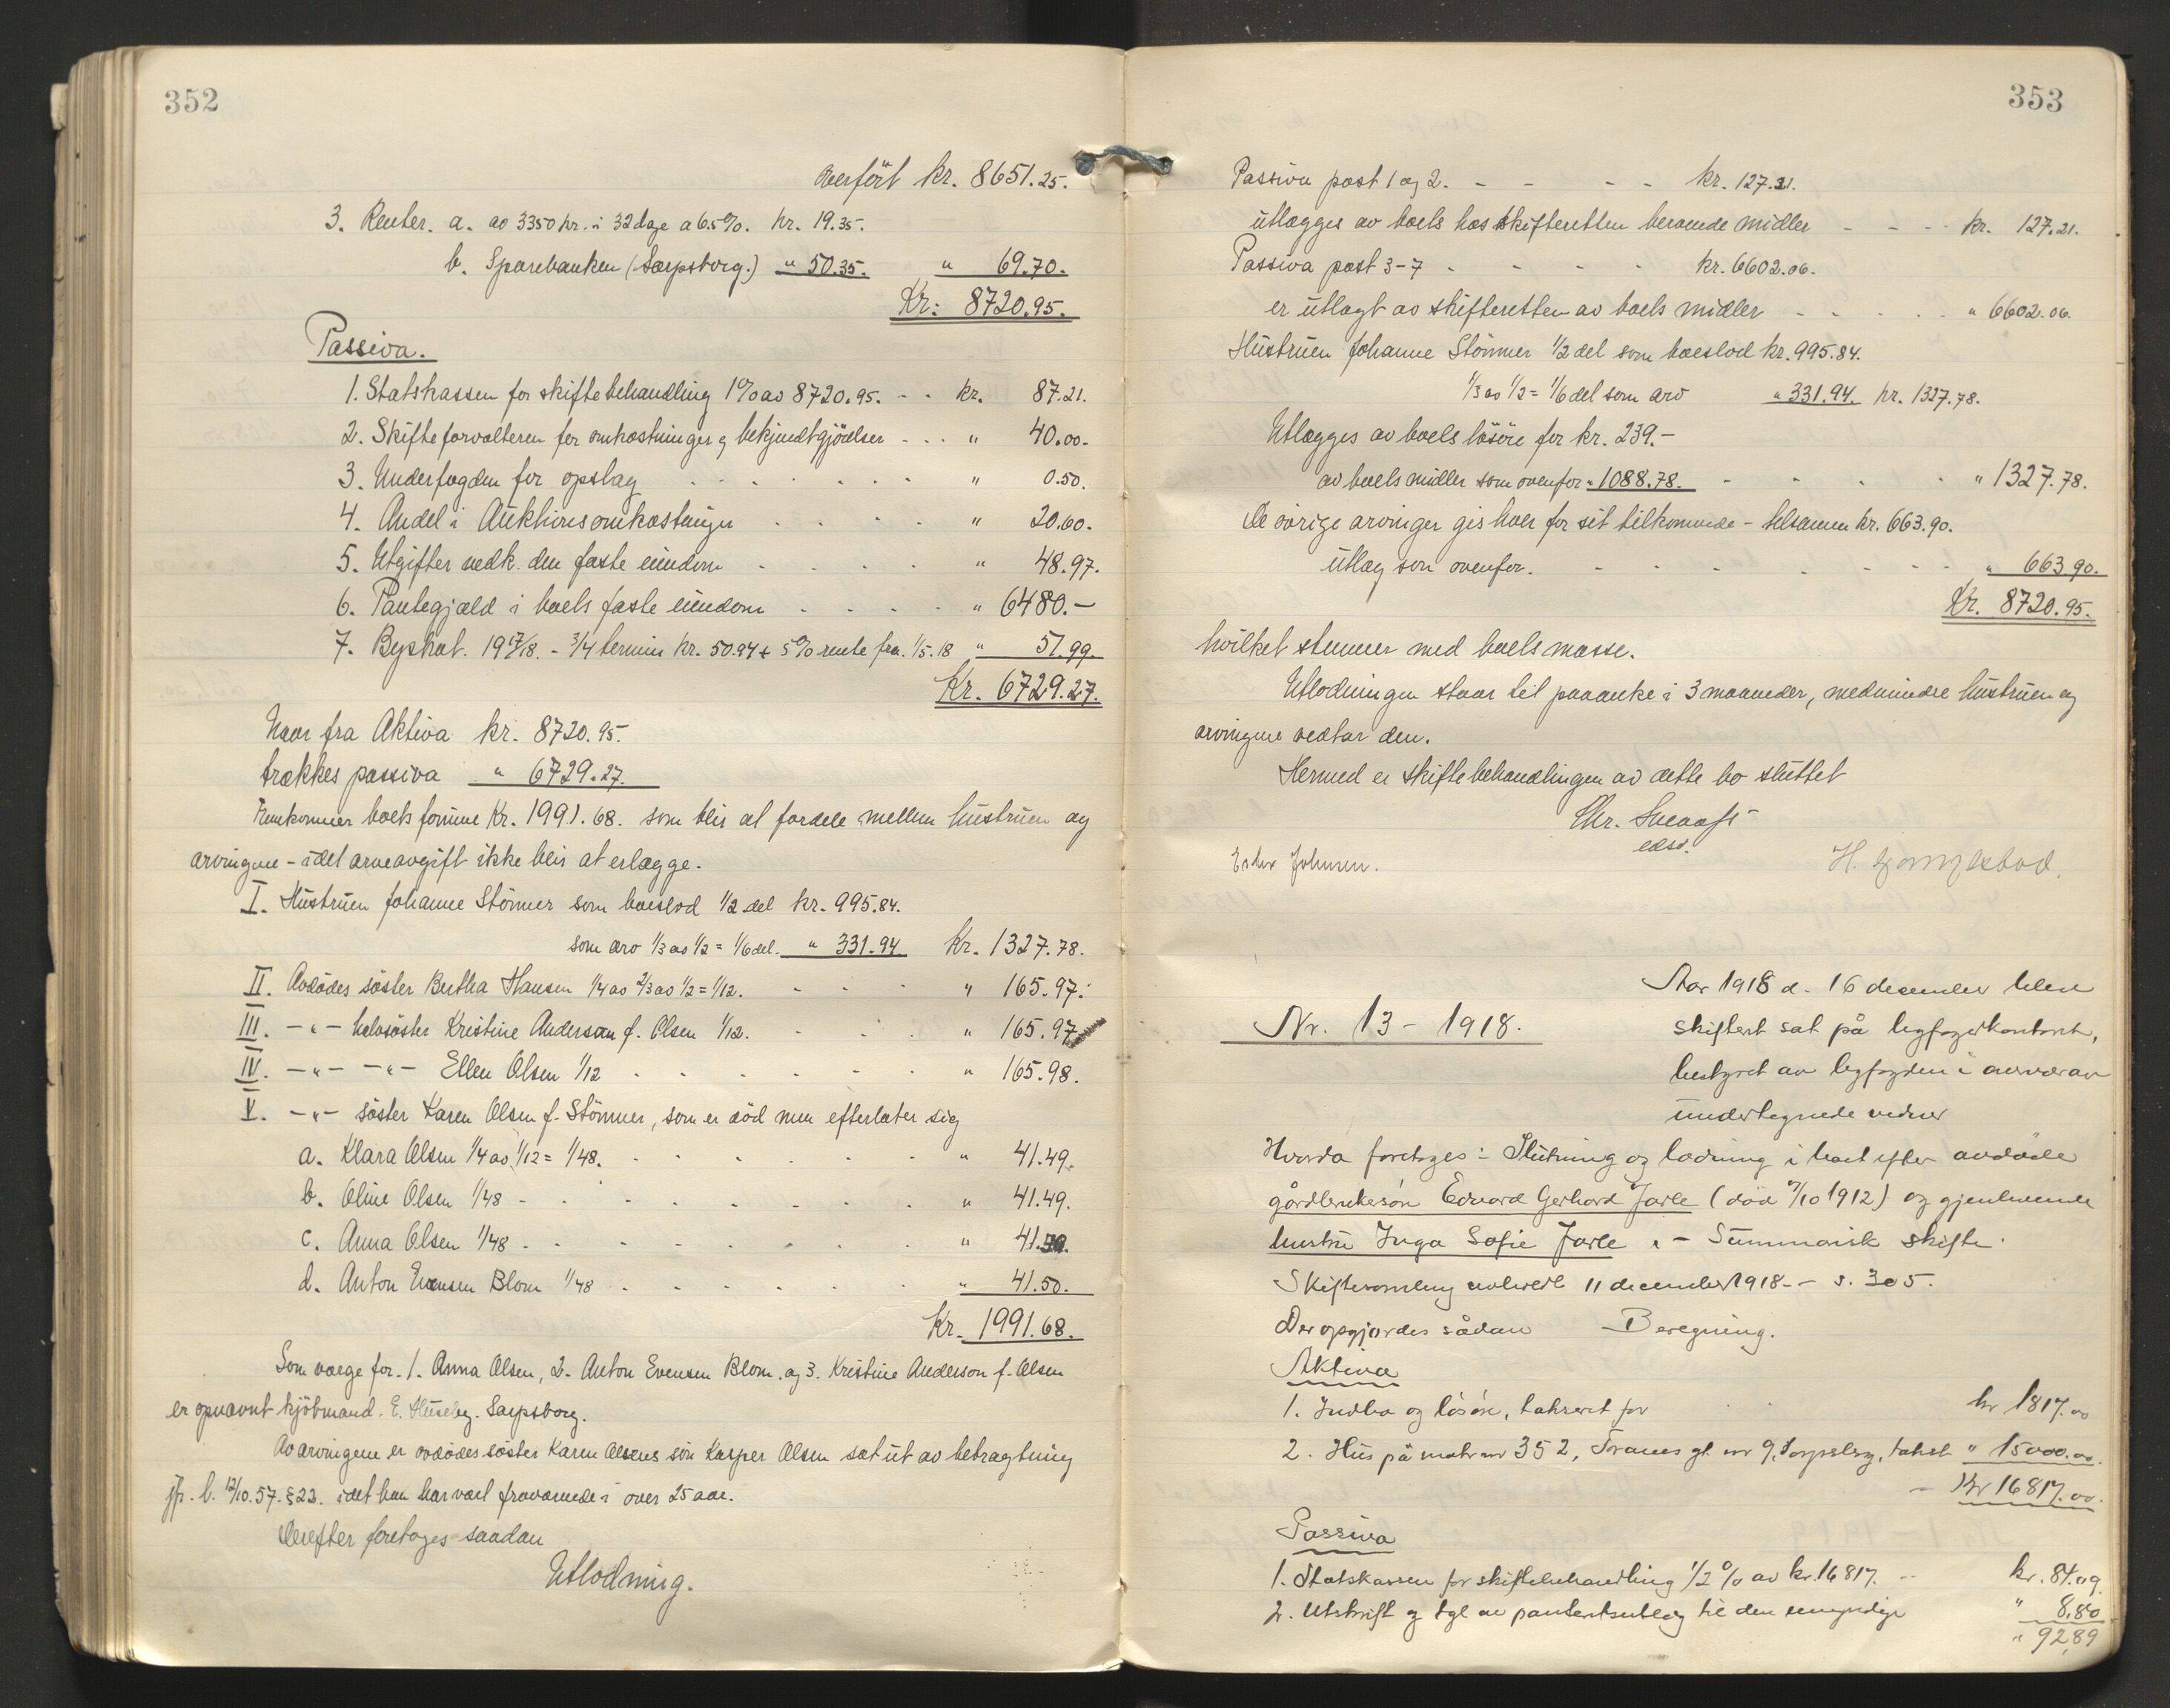 352
overfört kr. 8651.25.
3. Renter. a. av 3350 kr. i 32 dage a 6.5%. kr. 19.35.
b. Sparebanken (Sarpsborg.) " 50.35. " 69.70.
Kr: 8720.95.
Passiva.
1. Statskassen for skiftebehandling 1% av 8720.95. - - kr. 87.21.
2. Skifteforvalteren for omkostninger og bekjendtgjörelser - - - " 40.00.
3. Underfogden for opslag " 0.50.
4. Andel i Auktionsomkostninger " 20.60.
5. Utgifter vedk. den faste eiendom " 48.97.
6. Pantegjæld i boets faste eiendom " 6480.-
7. Byskat. 1917/18. - 3/4 termin kr. 50.94 + 5% rente fra 1/5.18 " 51.99.
Kr. 6729.27.
Naar fra Aktiva kr. 8720.95.
trækkes passiva " 6729.27.
Fremkommer boets formue Kr. 1991.68. som blir at fordele mellem hustruen og
arvingene - idet arveavgift ikke blir at erlægge.
I. Hustruen Johanne Störmer som boeslod 1/2 del kr. 995.84.
som arv 1/3 av 1/2 = 1/6 del. " 331.94. Kr. 1327.78.
II. Avdödes söster Bertha Hansen 1/4 av 2/3 av 1/2 = 1/12. " 165.97.
III. -"- halvsöster Kristine Anderson f. Olsen 1/12. " 165.97
IV. -"- -"- Ellen Olsen 1/12 " 165.98.
V. -"- söster Karen Olsen f. Störmer, som er död men efterlater sig
a. Klara Olsen 1/4 av 1/12 = 1/48. " 41.49.
b. Oline Olsen 1/48 - " 41.49.
c. Anna Olsen 1/48 - " 41.
d. Anton Evensen Blom 1/48 " 41.50.
Kr. 1991.68.
Som værge for. 1. Anna Olsen, 2. Anton Evensen Blom. og 3. Kristine Anderson f. Olsen
er opnævnt kjöbmand. E. Huseby. Sarpsborg.
Av arvingene er avdödes söster Karen Olsens sön Kasper Olsen sat ut av betragtning
jfr. l. 12/10.57. § 23. idet han har vært fraværende i over 25 aar.
Derefter foretoges saadan
Utlodning.
353
Passiva post 1 og 2. - - - - kr. 127.21.
utlægges av boets hos skifteretten beroende midler - - - kr. 127.21.
Passiva post 3-7 - - - - kr. 6602.06.
er utlagt av skifteretten av boets midler " 6602.06.
Hustruen Johanne Störmer 1/2 del som boeslod kr. 995.84.
1/3 av 1/2 = 1/6 del som arv " 331.94. kr. 1327.78.
Utlægges av boets lösöre for kr. 239.-
av boets midler som ovenfor " 1088.78. " 1327.78.
De övrige arvinger gis hver for sit tilkommende - tilsammen kr. 663.90.
utlæg som ovenfor. " 663.90.
Kr. 8720.95.
hvilket stemmer med boets masse.
Utlodningen staar til paaanke i 3 maaneder, medmindre hustruen og
arvingene vedtar den.
Hermed er skiftebehandlingen av dette bo sluttet
Chr.
edsv.
Esther Johnsen.
Nr. 13 - 1918.
Aar 1918 d. 16 december blev
skifteret sat på byfogedkontoret,
bestyret av byfogden i overvær av
undertegnede vidner
Hvorda foretoges: Slutning og lodning i boet efter avdöde
gårdbrukersön Edvard Gerhard Jarle (död 7/10 1912) og gjenlevende
hustru Inga Sofie Jarle. - Summarisk skifte.
Skiftesamling avholdt 11 december 1918 - - s. 305.
Der opgjordes sådan Beregning.
Aktiva
1. Indbo og lösöre, takseret for kr 1817.00
2. Hus på matr nr 352, gt. nr 9, Sarpsborg, takst " 15000.00.
Kr 16817.00.
Passiva
1. Statskassen for skiftebehandling 1/2 % av kr. 16817. - kr. 84.09.
2. Utskrift og tgl av panteretsutlæg til den umyndige " 8.80
" 92,89